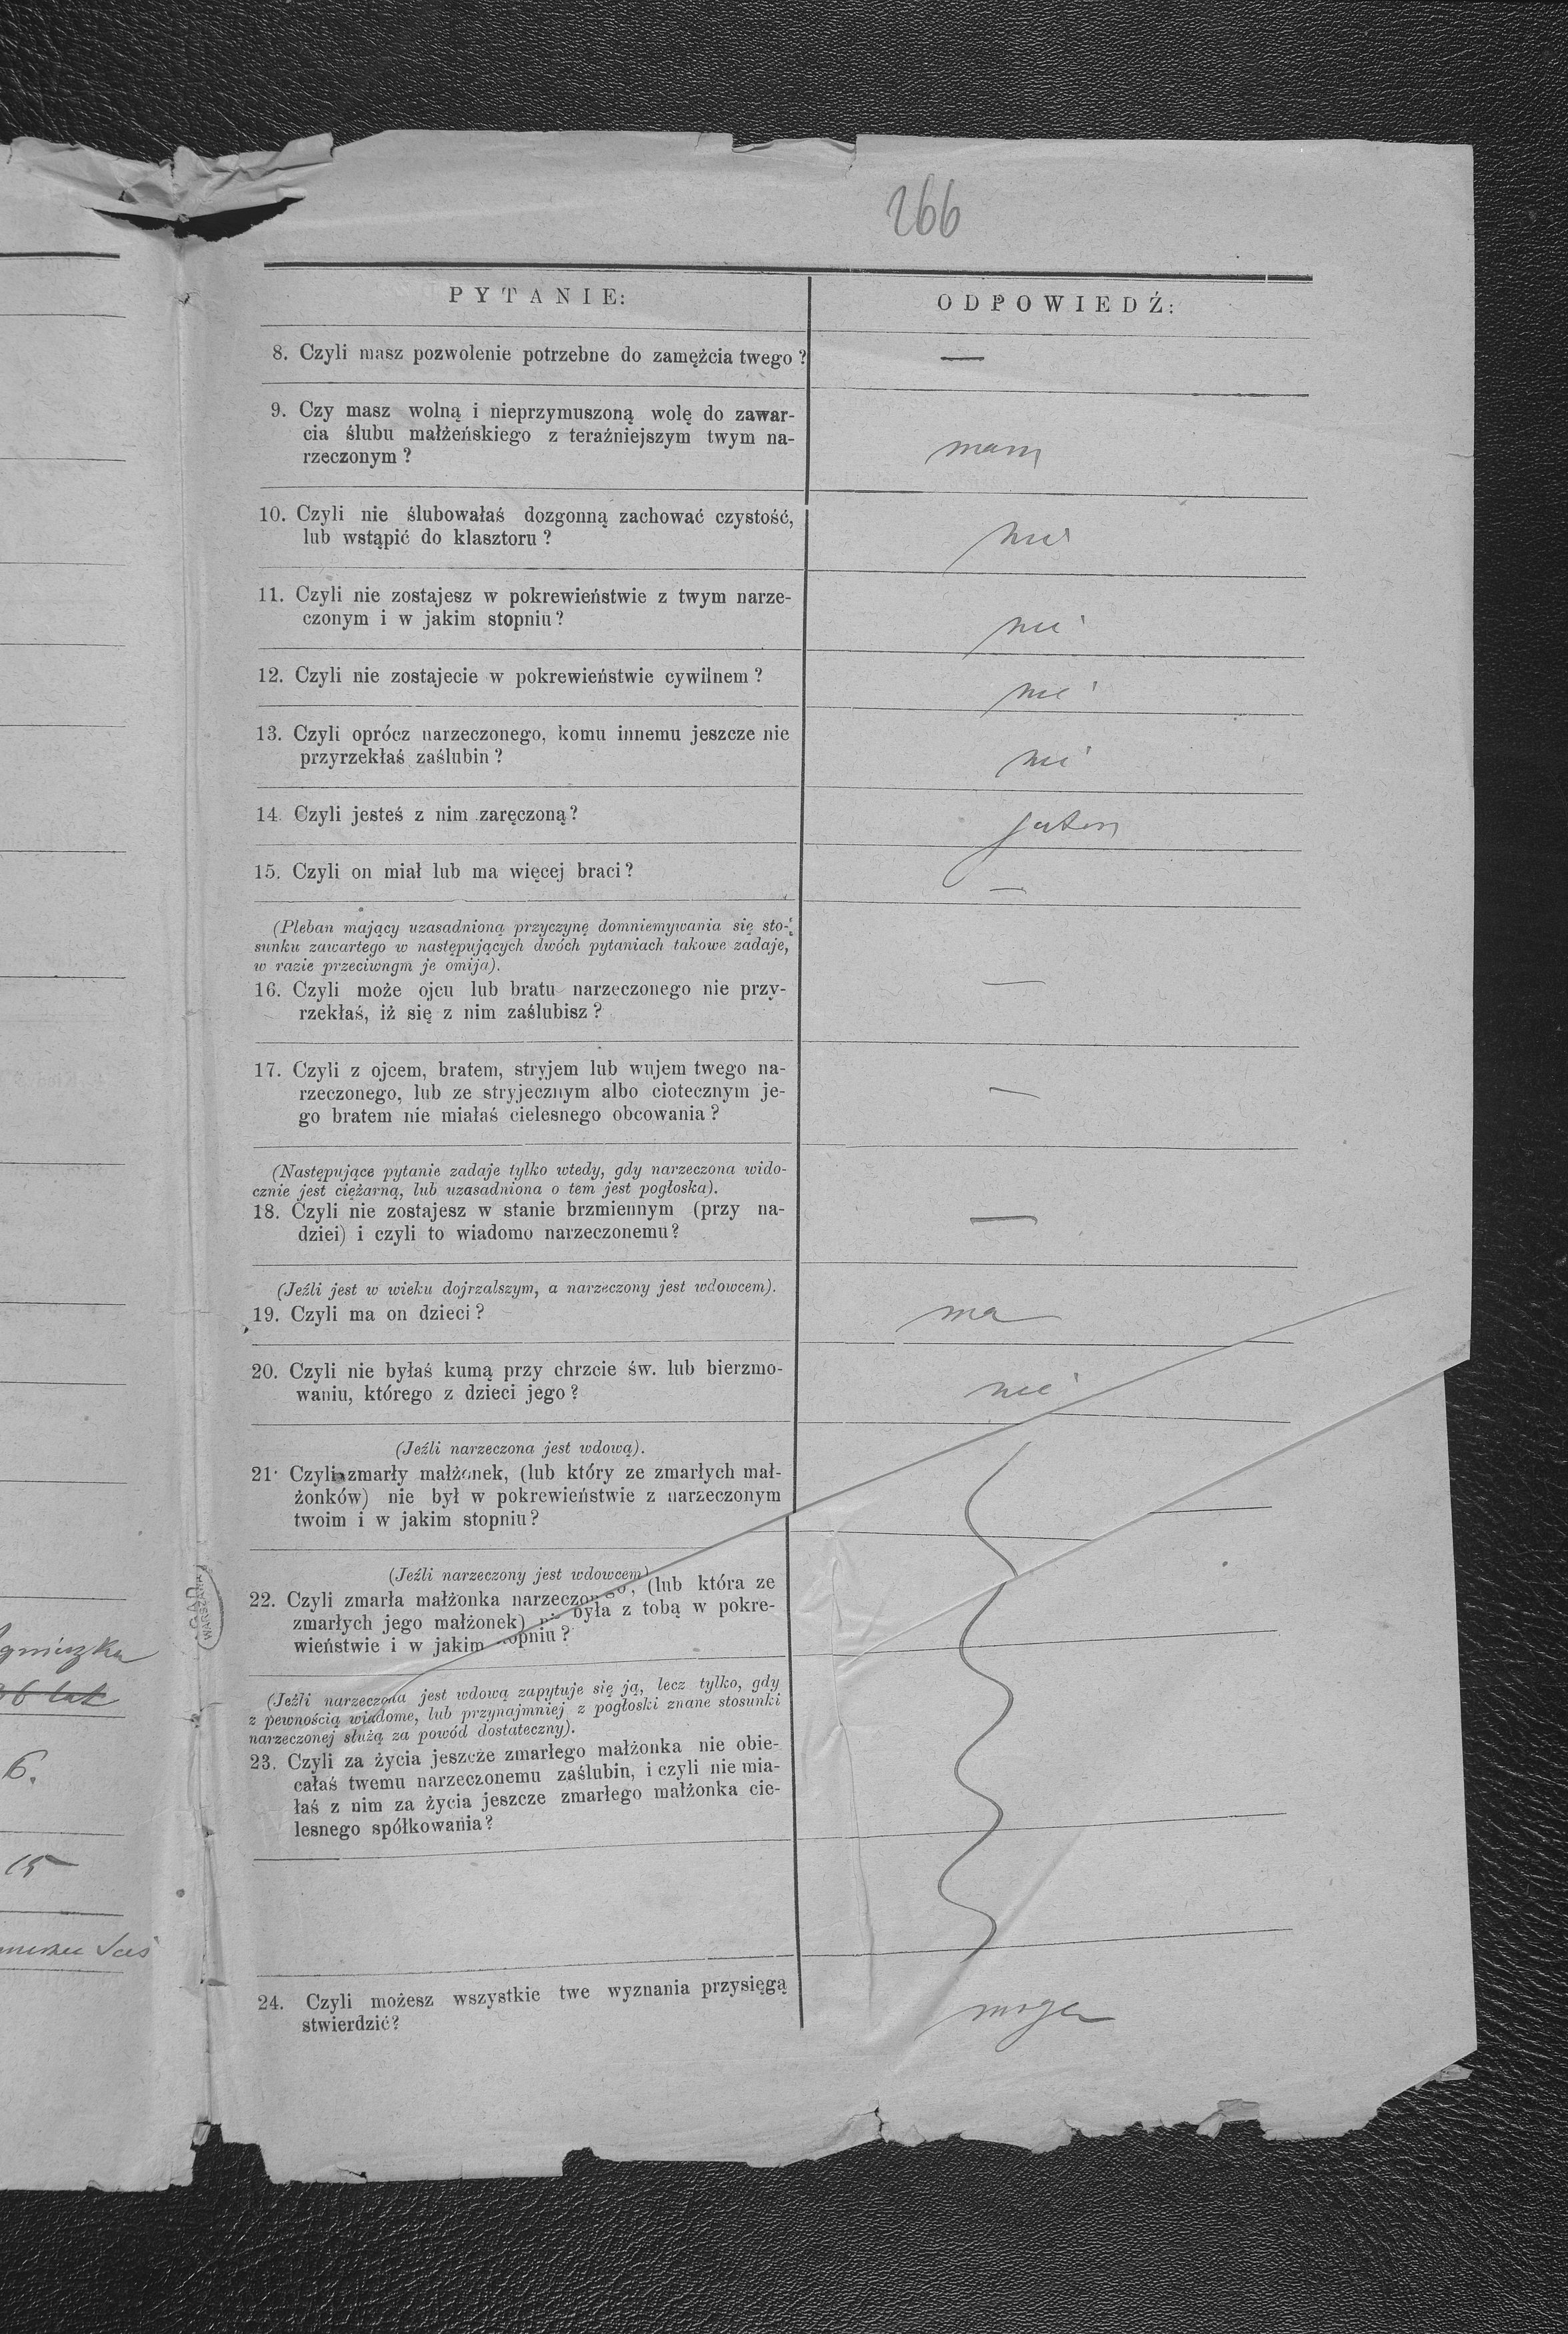 266
PYTANIE:
ODPOWIEDŹ:
8. Czyli masz pozwolenie potrzebne do zamężcia twego?
—
9. Czy masz wolną i nieprzymuszoną wolę do zawar-
cia ślubu małżeńskiego z teraźniejszym twym na-
rzeczonym?
mam
10. Czyli nie ślubowałaś dozgonną zachować czystość,
lub wstąpić do klasztoru?
nie
11. Czyli nie zostajesz w pokrewieństwie z twym narze-
czonym i w jakim stopniu?
nie
12. Czyli nie zostajecie w pokrewieństwie cywilnem?
nie
13. Czyli oprócz narzeczonego, komu innemu jeszcze nie
przyrzekłaś zaślubin?
nie
14. Czyli jesteś z nim zaręczoną?
jestem
15. Czyli on miał lub ma więcej braci?
—
(Pleban mający uzasadnioną przyczynę domniemywania się sto-
sunku zawartego w następujących dwóch pytaniach takowe zadaje,
w razie przeciwngm je omija).
16. Czyli może ojcu lub bratu narzeczonego nie przy-
rzekłaś, iż się z nim zaślubisz?
—
17. Czyli z ojcem, bratem, stryjem lub wujem twego na-
rzeczonego, lub ze stryjecznym albo ciotecznym je-
go bratem nie miałaś cielesnego obcowania?
—
(Następujące pytanie zadaje tylko wtedy, gdy narzeczona wido-
cznie jest ciężarną, lub uzasadniona o tem jest pogłoska).
18. Czyli nie zostajesz w stanie brzmiennym (przy na-
dziei) i czyli to wiadomo narzeczonemu?
—
(Jeźli jest w wieku dojrzalszym, a narzeczony jest wdowcem).
19. Czyli ma on dzieci?
ma
20. Czyli nie byłaś kumą przy chrzcie św. lub bierzmo-
waniu, którego z dzieci jego?
nie
(Jeźli narzeczona jest wdową).
21. Czyli zmarły małżonek, (lub który ze zmarłych mał-
żonków) nie był w pokrewieństwie z narzeczonym
twoim i w jakim stopniu?
(Jeźli narzeczony jest wdowcem)
22. Czyli zmarła małżonka narzeczonego, (lub która ze
zmarłych jego małżonek) nie była z tobą w pokre-
wieństwie i w jakim stopniu?
(Jeźli narzeczona jest wdową zapytuje się ją, lecz tylko, gdy
z pewnością wiadome, lub przynajmniej z pogłoski znane stosunki
narzeczonej służą za powód dostateczny).
23. Czyli za życia jeszcze zmarłego małżonka nie obie-
całaś twemu narzeczonemu zaślubin, i czyli nie mia-
łaś z nim za życia jeszcze zmarłego małżonka cie-
lesnego spółkowania?
24. Czyli możesz wszystkie twe wyznania przysięgą
stwierdzić?
mogę
gnieszka
36 lat
6.
15
AGAD
WARSZAWA